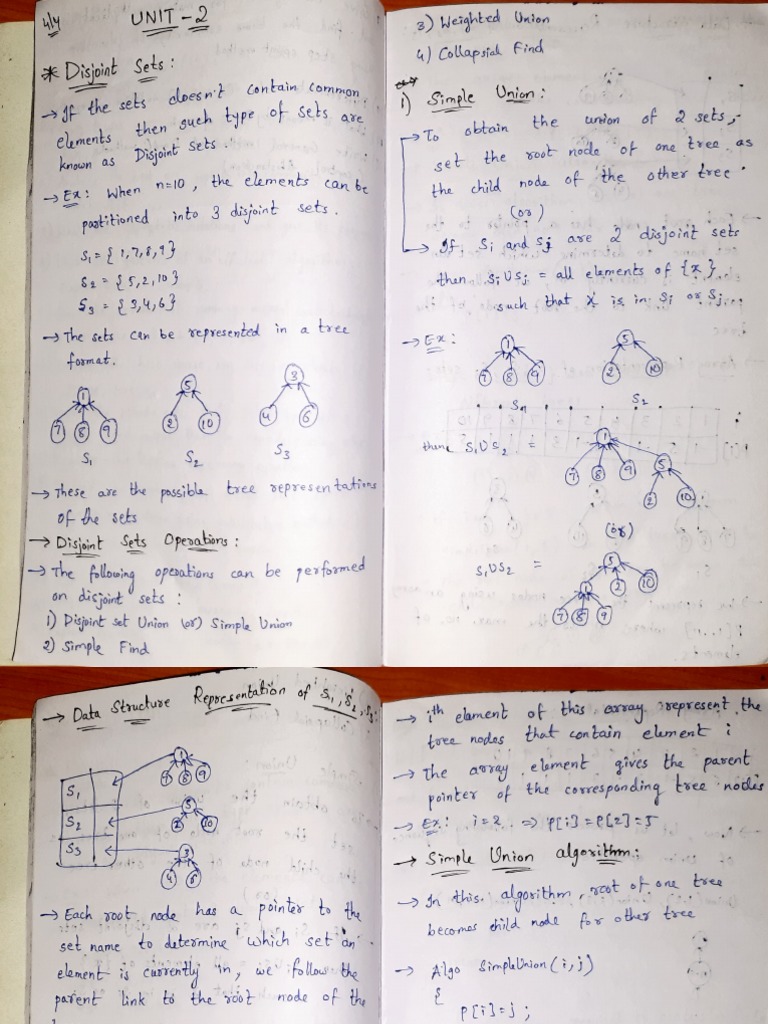 4/4 UNIT-2
* Disjoint Sets:
→ If the sets doesn't contain common
elements then such type of sets are
known as Disjoint sets.
→ Ex: When n=10, the elements can be
partitioned into 3 disjoint sets.
S₁ = {1,7,8,9}
S₂ = {5,2,10}
S₃ = {3,4,6}
→ The sets can be represented in a tree
format.
1 5 3
7 8 9 2 10 4 6
S₁ S₂ S₃
→ These are the possible tree representations
of the sets
→ Disjoint Sets Operations:
→ The following operations can be performed
on disjoint sets:
1) Disjoint set Union (or) Simple Union
2) Simple Find
3) Weighted Union
4) Collapsial Find
1) Simple Union:
→ To obtain the union of 2 sets,
set the root node of one tree as
the child node of the other tree.
(or)
→ If Si and Sj are 2 disjoint sets
then Si∪Sj = all elements of {x}
such that x is in Si or Sj.
→ Ex:
1 5
7 8 9 2 10
S₁ S₂
then S₁∪S₂ = 1
7 8 9 5
2 10
(or)
S₁∪S₂ = 5
1 2 10
7 8 9
→ Data Structure Representation of S₁, S₂, S₃:
1
7 8 9
S₁
5
S₂
2 10
S₃ 3
4 6
→ Each root node has a pointer to the
set name to determine which set an
element is currently in, we follow the
parent link to the root node of the
→ ith element of this array represent the
tree nodes that contain element i
→ The array element gives the parent
pointer of the corresponding tree nodes
→ Ex: i=2 ⇒ P[i]=P[2]=5
→ Simple Union algorithm:
→ In this algorithm, root of one tree
becomes child node for other tree
→ Algo SimpleUnion(i,j)
{
P[i]=j;